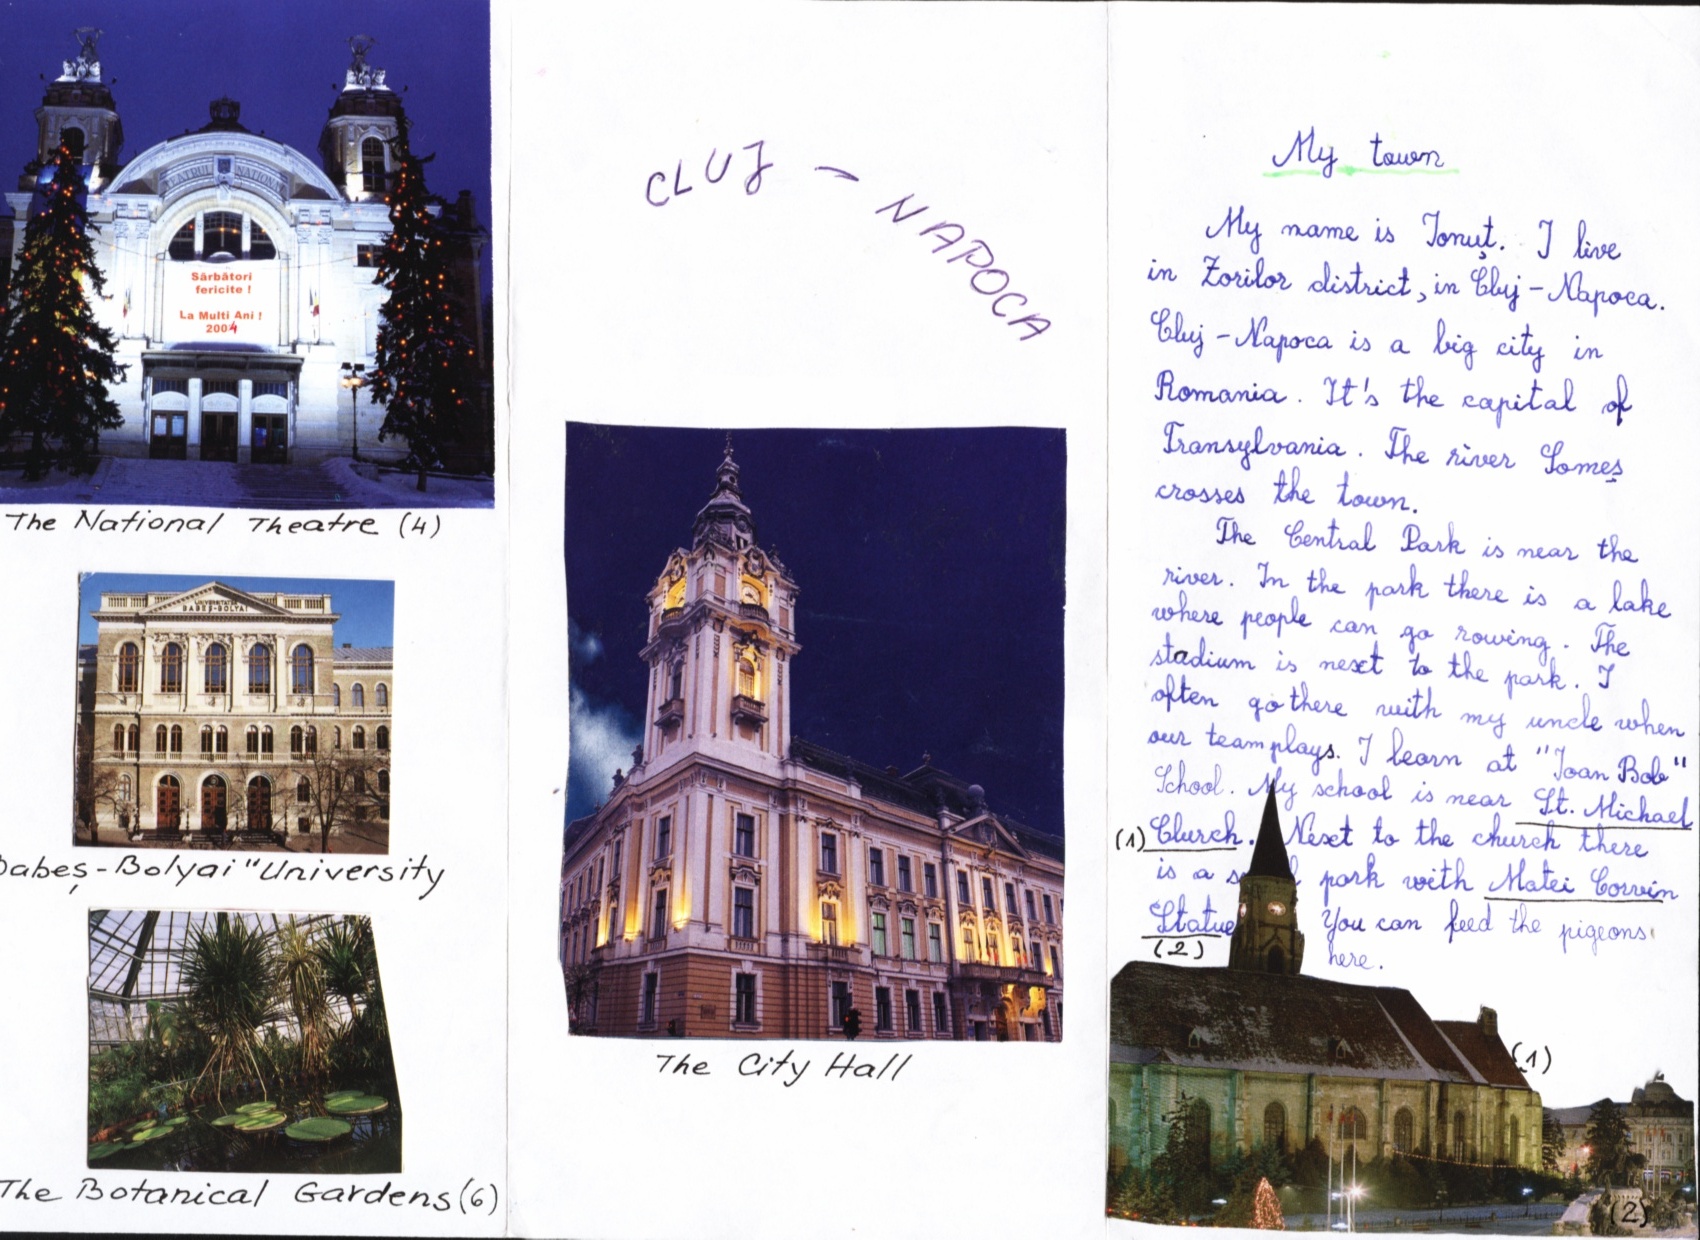 TEATRUL NAȚIONAL
Sărbători
fericite !
La Multi Ani !
2004
The National Theatre (4)
UNIVERSITATEA
BABEȘ-BOLYAI
Babeș-Bolyai "University
The Botanical Gardens (6)
CLUJ - NAPOCA
The City Hall
My town
My name is Ionuț. I live
in Zorilor district, in Cluj - Napoca.
Cluj - Napoca is a big city in
Romania. It's the capital of
Transylvania. The river Someș
crosses the town.
The Central Park is near the
river. In the park there is a lake
where people can go rowing. The
stadium is next to the park. I
often go there with my uncle when
our team plays. I learn at "Ioan Bob"
School. My school is near St. Michael
(1) Church. Next to the church there
is a park with Matei Corvin
Statue You can feed the pigeons
(2) here.
(1)
(2)